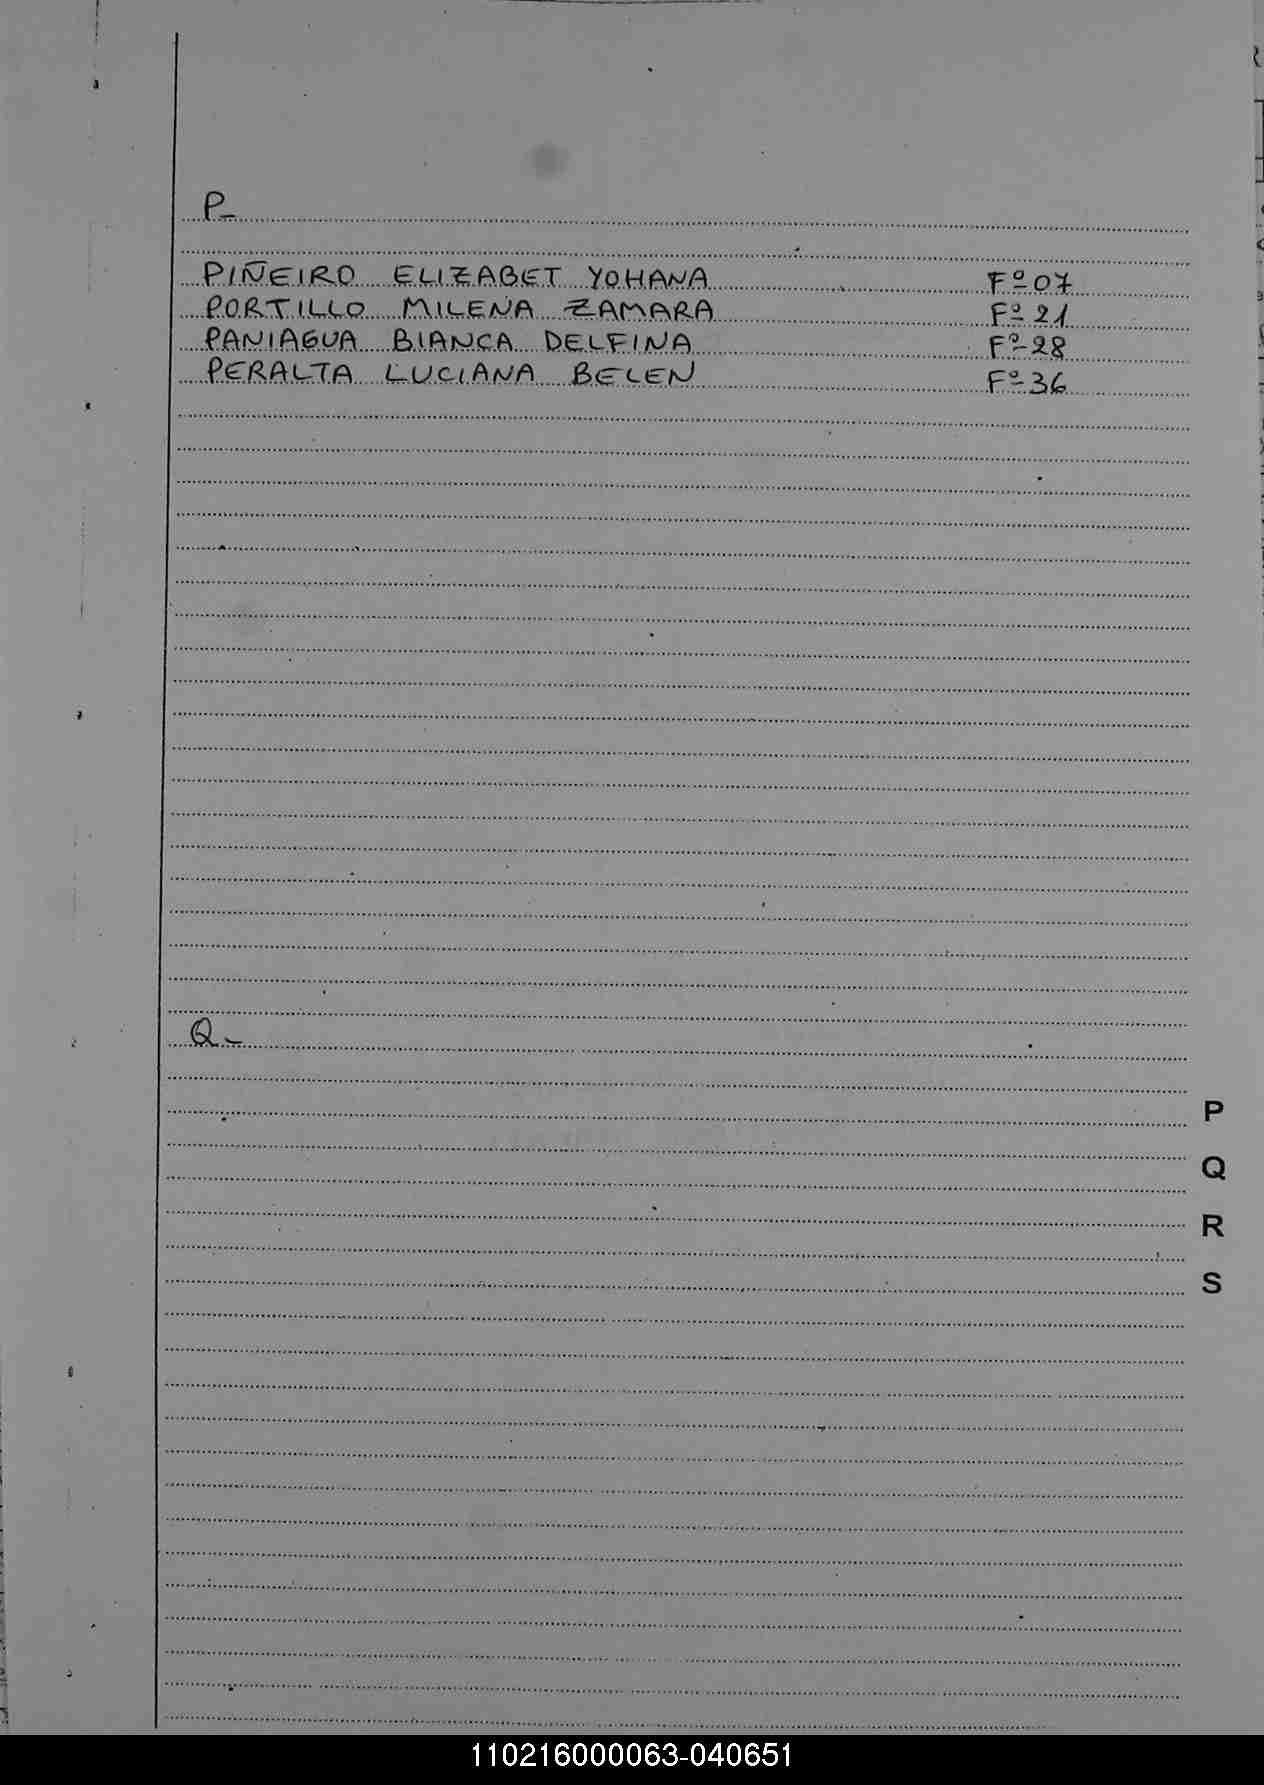 P-
PIÑEIRO ELIZABET YOHANA Fº 07
PORTILLO MILENA ZAMARA Fº 21
PANIAGUA BIANCA DELFINA Fº 28
PERALTA LUCIANA BELEN Fº 36
Q-
P
Q
R
S
110216000063-040651